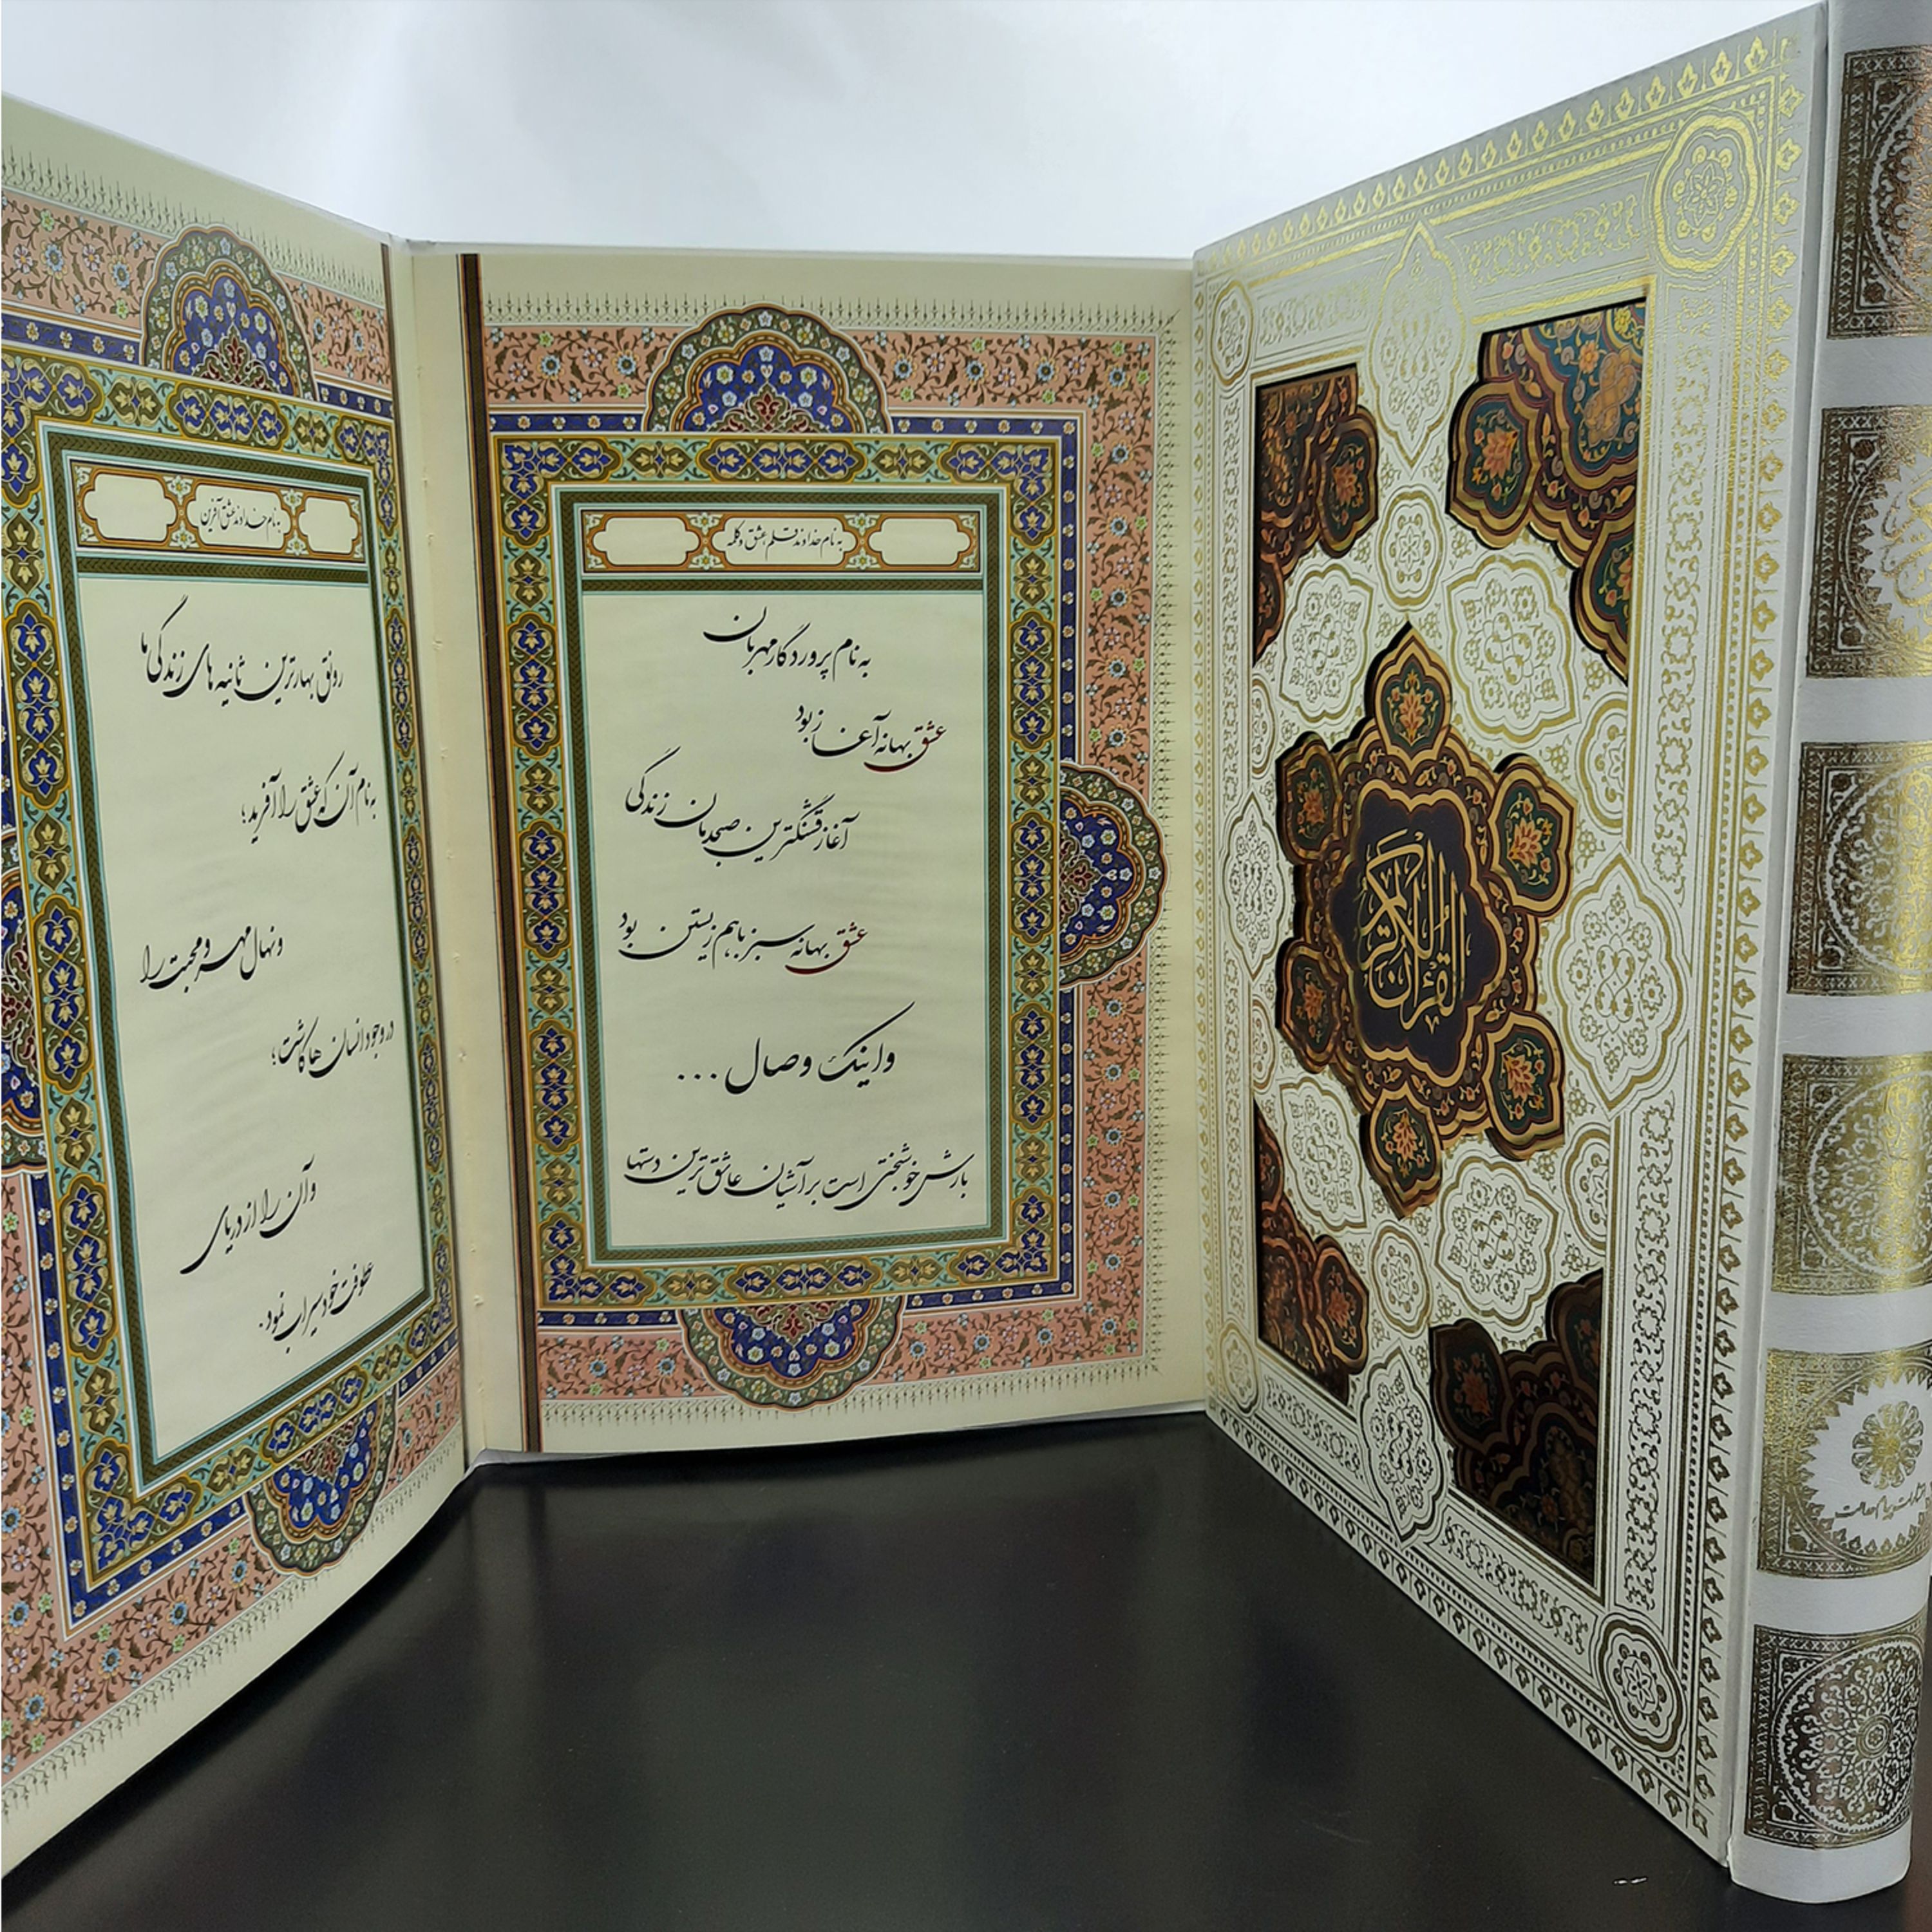 به نام خداوند قلم، عشق و کلمه
به نام پروردگار مهربان
عشق بهانه آغاز بود
آغاز قشنگترین صبحدمان زندگی
عشق بهانه سبز با هم زیستن بود
و اینک وصال ...
بارش خوشبختی است بر آشیان عاشق ترین دستها
به نام خداوند عشق آفرین
رونق بهارترین ثانیه های زندگی ما
به نام آن که عشق را آفرید؛
و نهال مهر و محبت را
در وجود انسان ها کاشت؛
و آن را از دریای
عطوفت خود سیراب نمود.
القرآن الكريم
انتشارات پیام عدالت